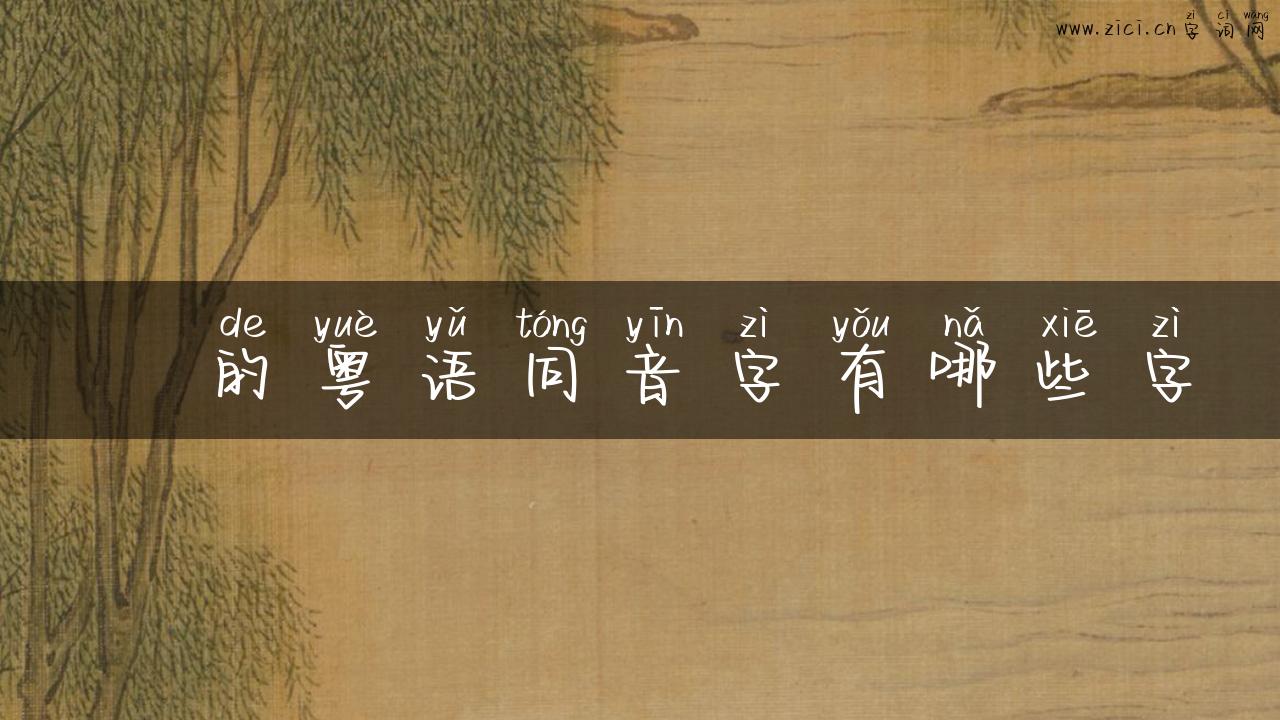 zì cí wǎng
www.zici.cn 字词网
de yuè yǔ tóng yīn zì yǒu nǎ xiē zì
的粤语同音字有哪些字